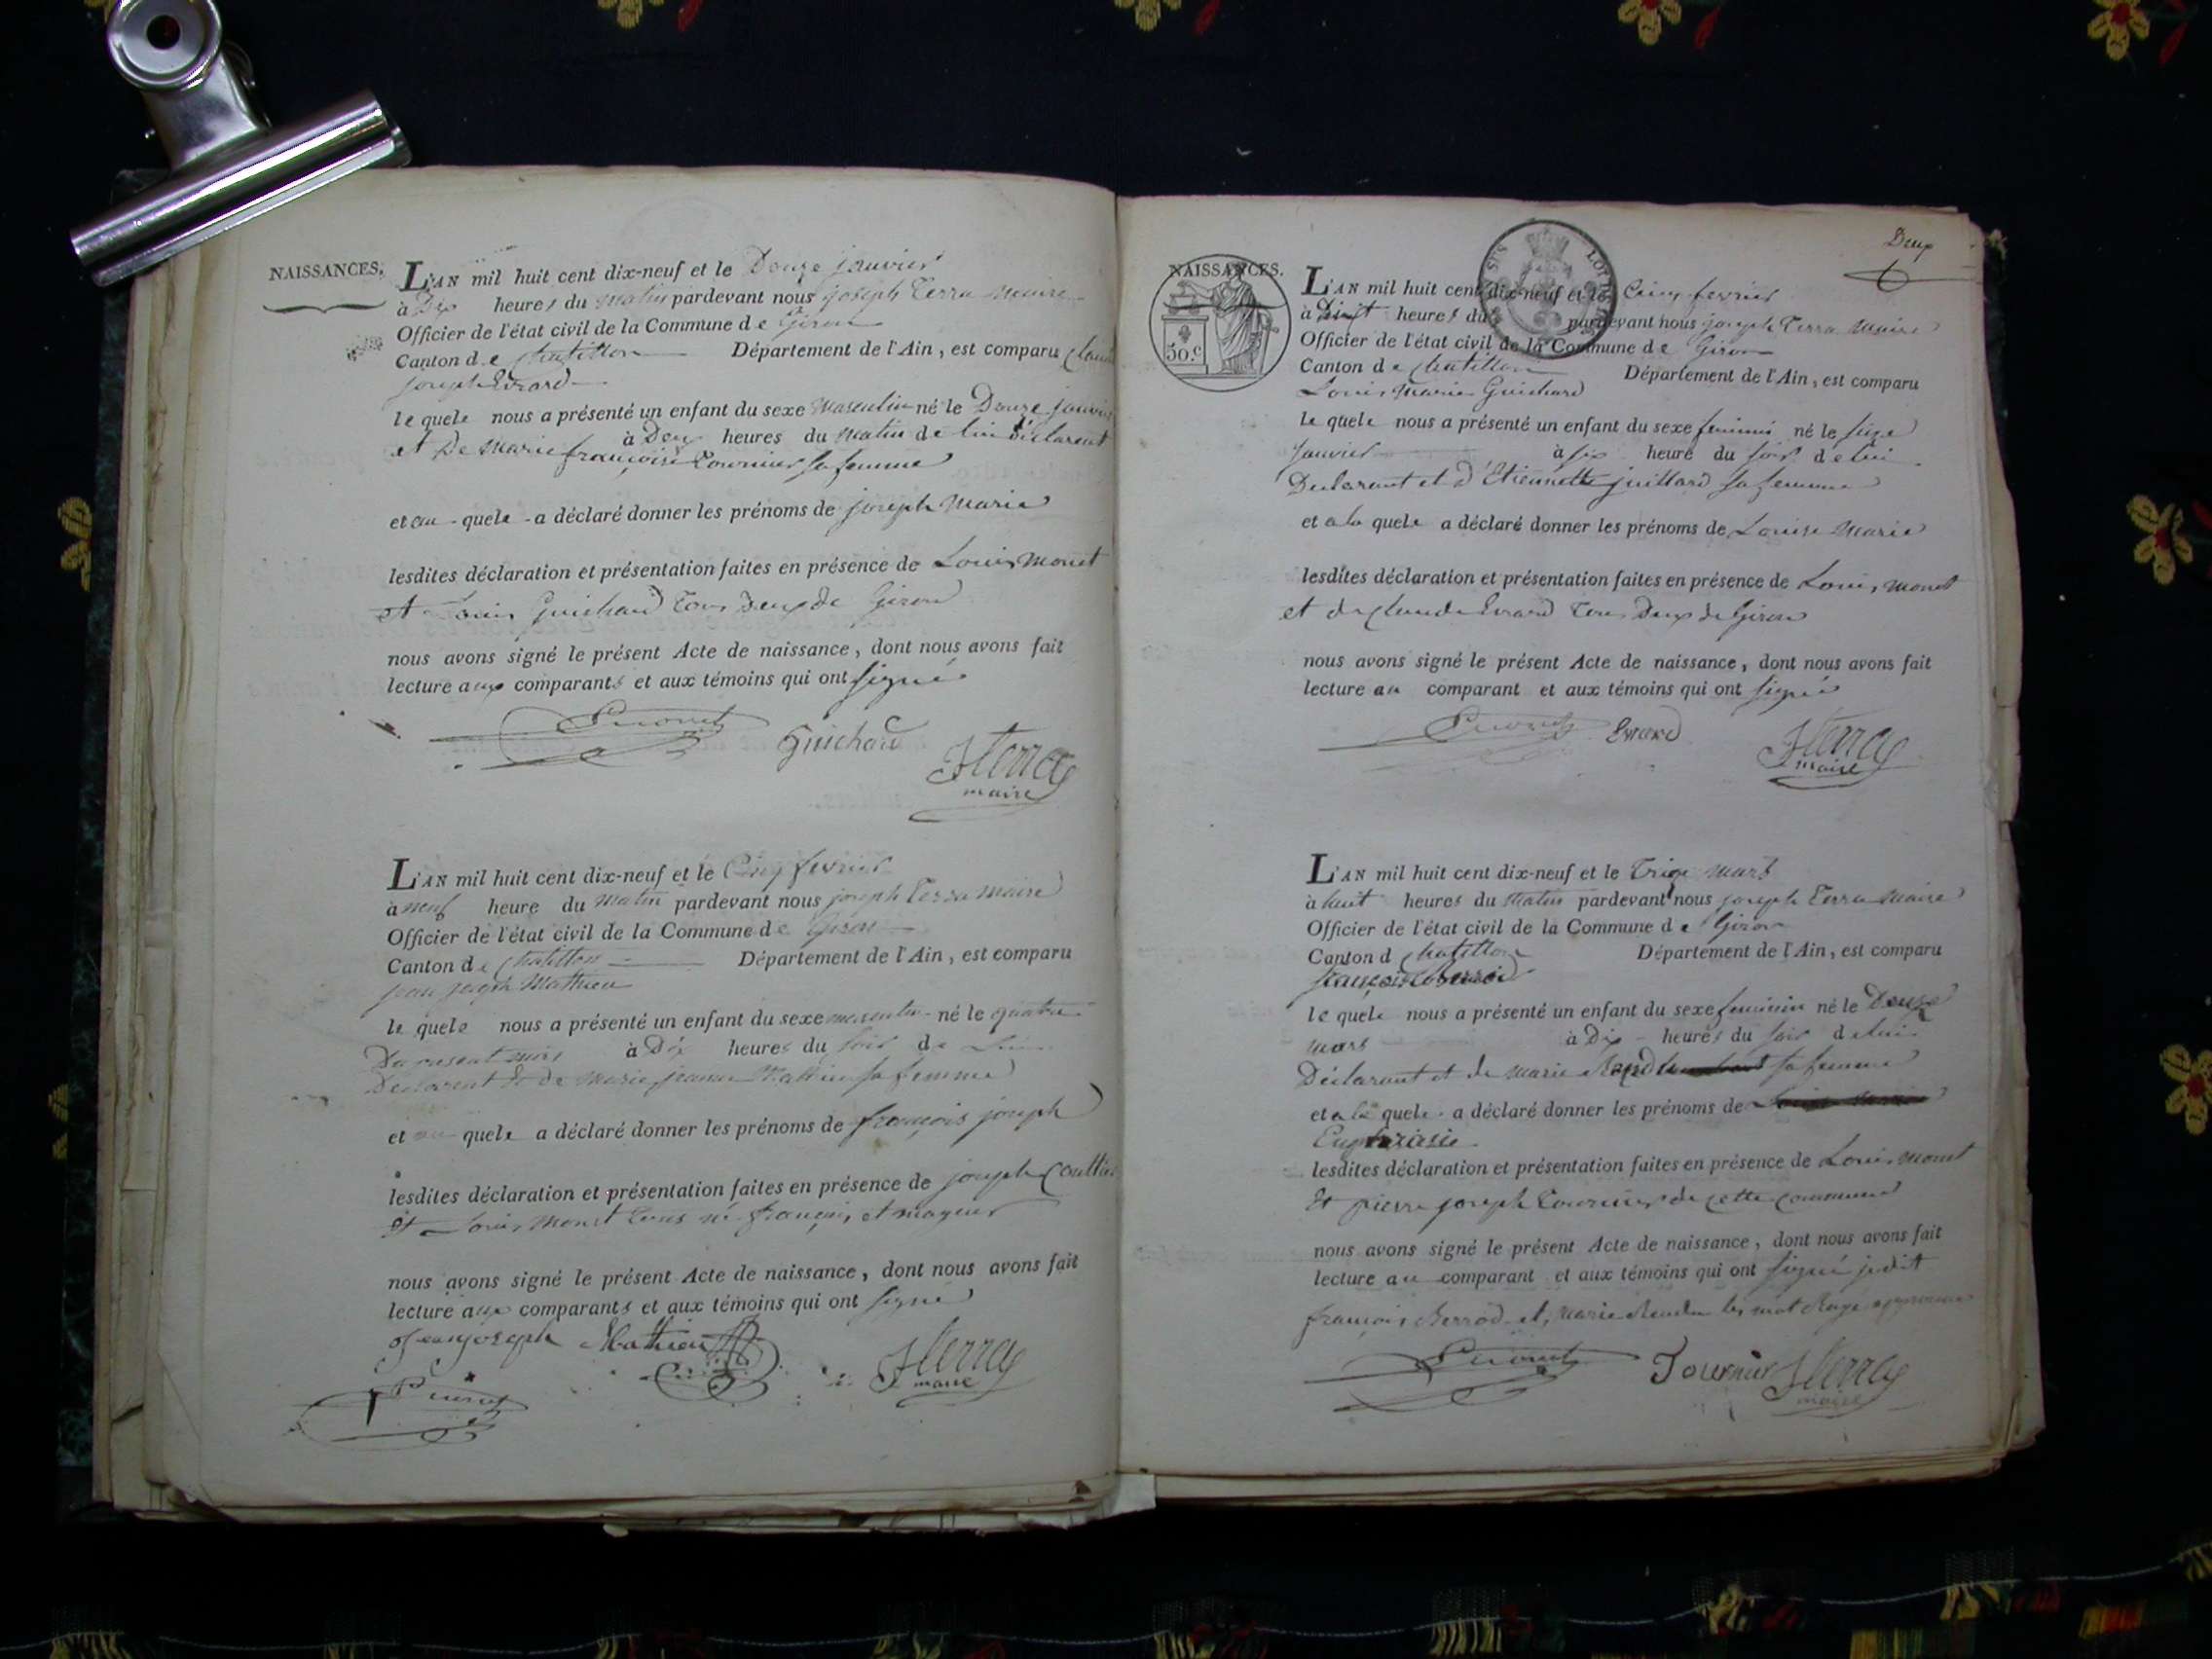 NAISSANCES.
L'AN mil huit cent dix-neuf et le Douze janvier
à Dix heures du matin pardevant nous joseph Terra maire
Officier de l'état civil de la Commune de Giron
Canton de chatillon Département de l'Ain, est comparu
joseph Evrard
le quele nous a présenté un enfant du sexe masculin né le Douze janvier
à Deux heures du matin de lui déclarent
et De marie françoise Tournier sa femme
et au quele a déclaré donner les prénoms de joseph Marie
lesdites déclaration et présentation faites en présence de Louis monet
et Louis guichard Tous Deux de Giron
nous avons signé le présent Acte de naissance, dont nous avons fait
lecture aux comparants et aux témoins qui ont signé
Guichard
JTerra
maire
L'AN mil huit cent dix-neuf et le Cinq fevrier
à neuf heure du matin pardevant nous joseph Terra maire
Officier de l'état civil de la Commune de Giron
Canton de chatillon Département de l'Ain, est comparu
jean joseph Mathieu
le quele nous a présenté un enfant du sexe masculin né le quatre
Du present mois à Dix heures du soir de Lui
Declarent et de marie jeanne Mathieu sa femme
et au quele a déclaré donner les prénoms de françois joseph
lesdites déclaration et présentation faites en présence de joseph
et Louis monet Tous françois et mageur
nous avons signé le présent Acte de naissance, dont nous avons fait
lecture aux comparants et aux témoins qui ont signé
jean joseph Mathieu
JTerra
maire
Deux
NAISSANCES.
50.c
L'AN mil huit cent dix-neuf et le Cinq fevrier
à heures du pardevant nous joseph Terra maire
Officier de l'état civil de la Commune de Giron
Canton de chatillon Département de l'Ain, est comparu
Louis Marie Guichard
le quele nous a présenté un enfant du sexe feminin né le seize
janvier à six heure du soir de lui
Declarant et d'Etiennette juillard sa femme
et a la quele a déclaré donner les prénoms de Louise Marie
lesdites déclaration et présentation faites en présence de Louis monet
et de claude Evrard Tous Deux de Giron
nous avons signé le présent Acte de naissance, dont nous avons fait
lecture au comparant et aux témoins qui ont signé
Evrard
JTerra
maire
L'AN mil huit cent dix-neuf et le Treize mars
à huit heures du matin pardevant nous joseph Terra Maire
Officier de l'état civil de la Commune de Giron
Canton d chatillon Département de l'Ain, est comparu
françois
le quele nous a présenté un enfant du sexe feminin né le Douze
mars à Dix heures du soir de lui
Déclarant et de marie sa femme
et a la quele a déclaré donner les prénoms de
Euphrasie
lesdites déclaration et présentation faites en présence de Louis monet
Et pierre joseph Tournier de cette commune
nous avons signé le présent Acte de naissance, dont nous avons fait
lecture au comparant et aux témoins qui ont signé
françois Berrod et marie les mot Rayé
Tournier
JTerra
maire